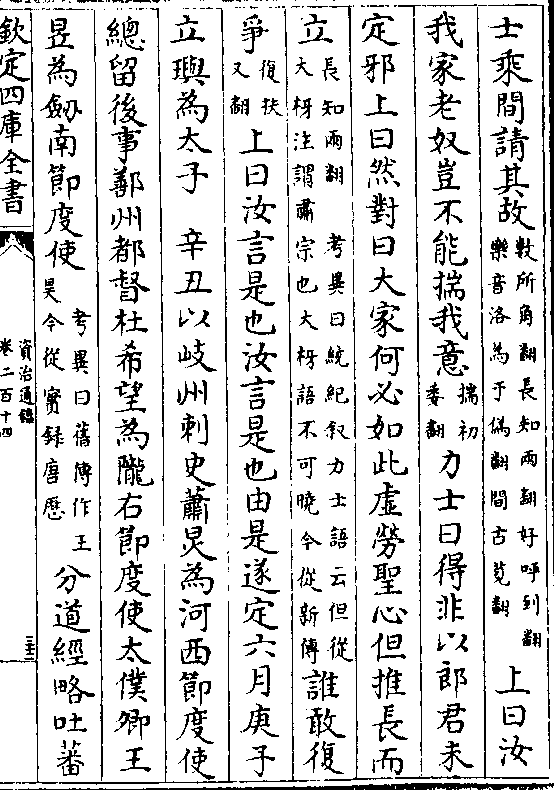 士乘間請其故數所角翻長知兩翻好呼到翻樂音洛為于偽翻間古莧翻上曰汝
我家老奴豈不能揣我意揣初委翻力士曰得非以郎君未
定邪上曰然對曰大家何必如此虛勞聖心但推長而
立長知兩翻 考異曰統紀叙力士語云但從大枒注謂肅宗也大枒語不可曉今從新傳誰敢復
爭復扶又翻上曰汝言是也汝言是也由是遂定六月庚子
立璵為太子 辛丑以岐州刺史蕭炅為河西節度使
總留後事鄯州都督杜希望為隴右節度使太僕卿王
昱為劒南節度使考異曰舊傳作王昊今從實録唐厯分道經略吐蕃
欽定四庫全書
資治通鑑
卷二百十四